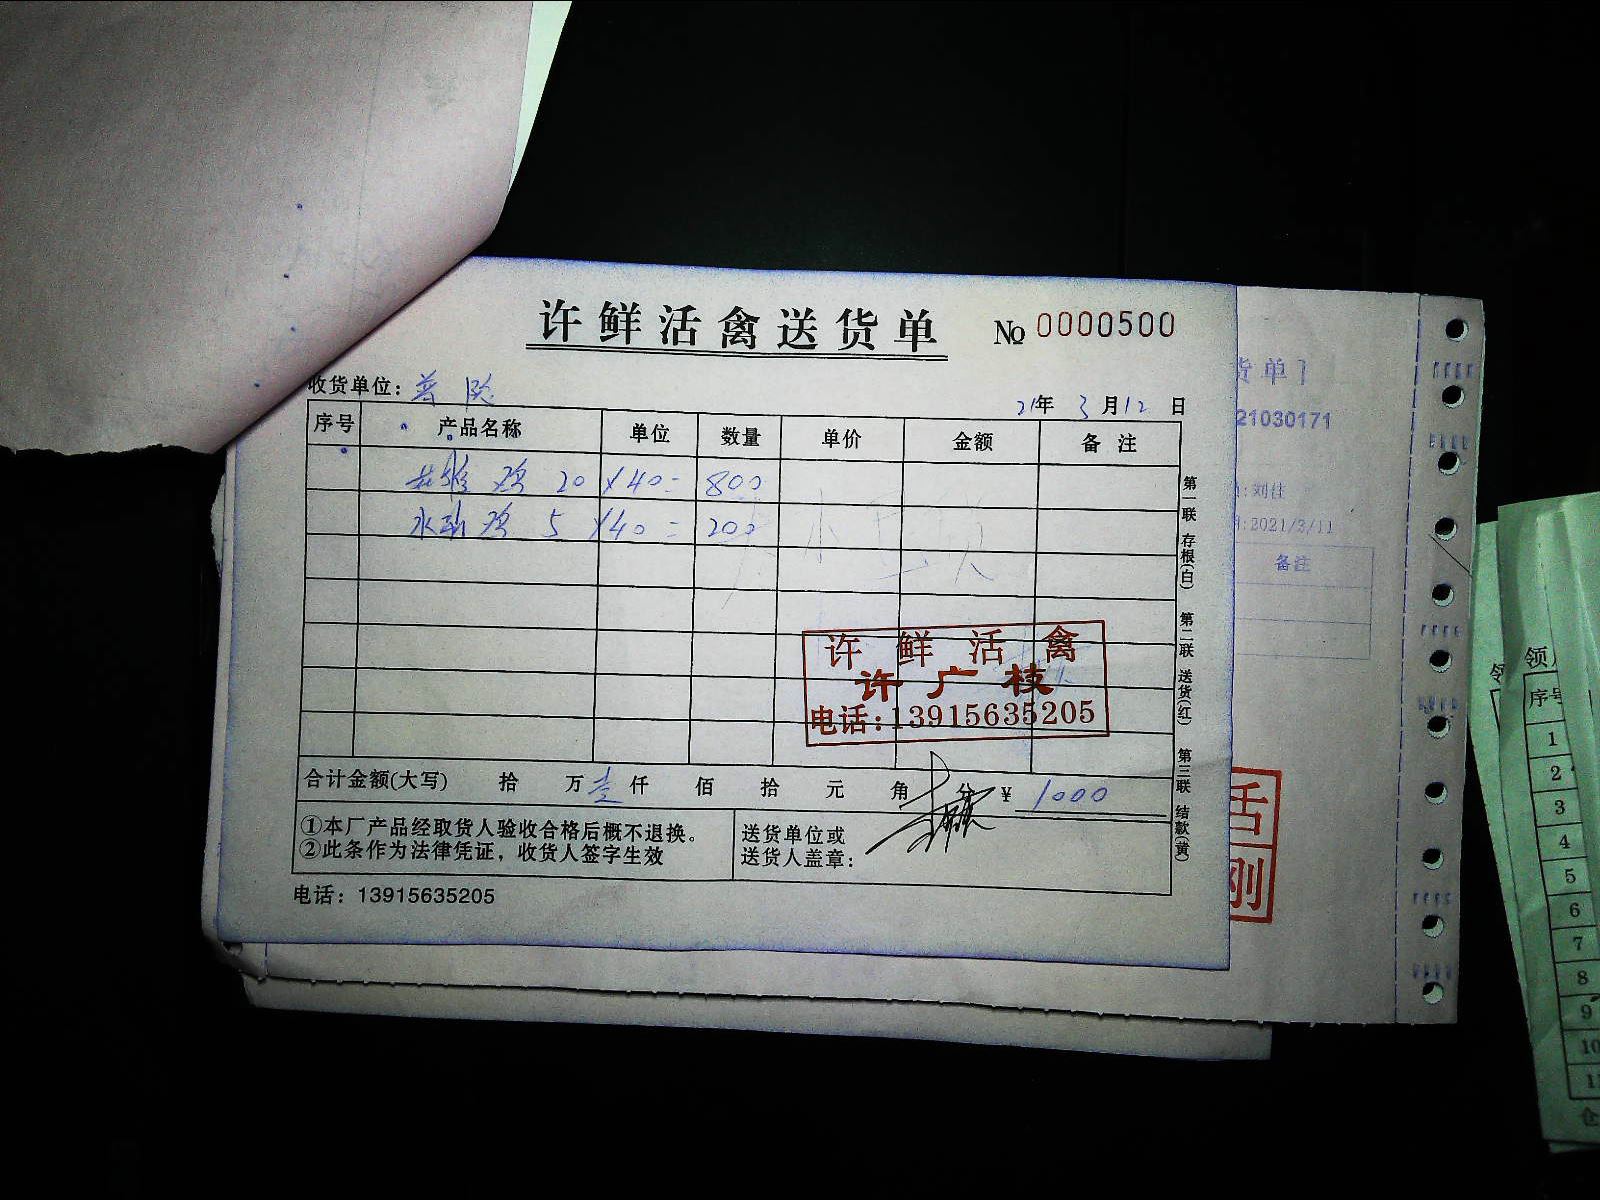 许鲜活禽送货单
№ 0000500
收货单位：普
21年 3月12日
序号 产品名称 单位 数量 单价 金额 备注
鸡 20 × 40 = 800
水 鸡 5 × 40 = 200
第一联 存根(白) 第二联 送货(红) 第三联 结款(黄)
许鲜活禽
许广枝
电话:13915635205
合计金额(大写) 拾 万 壹 仟 佰 拾 元 角 分 ¥ 1000
①本厂产品经取货人验收合格后概不退换。
②此条作为法律凭证，收货人签字生效
送货单位或
送货人盖章：
电话：13915635205
货单]
21030171
:刘佳
:2021/3/11
备注
活
刚
领
序号
1
2
3
4
5
6
7
8
9
10